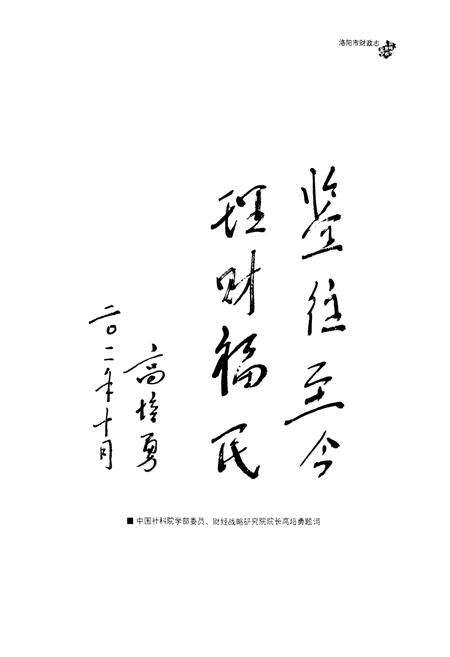 洛阳市财政志
鉴往至今
理财福民
高培勇
二〇一二年十月
■ 中国社科院学部委员、财经战略研究院院长高培勇题词